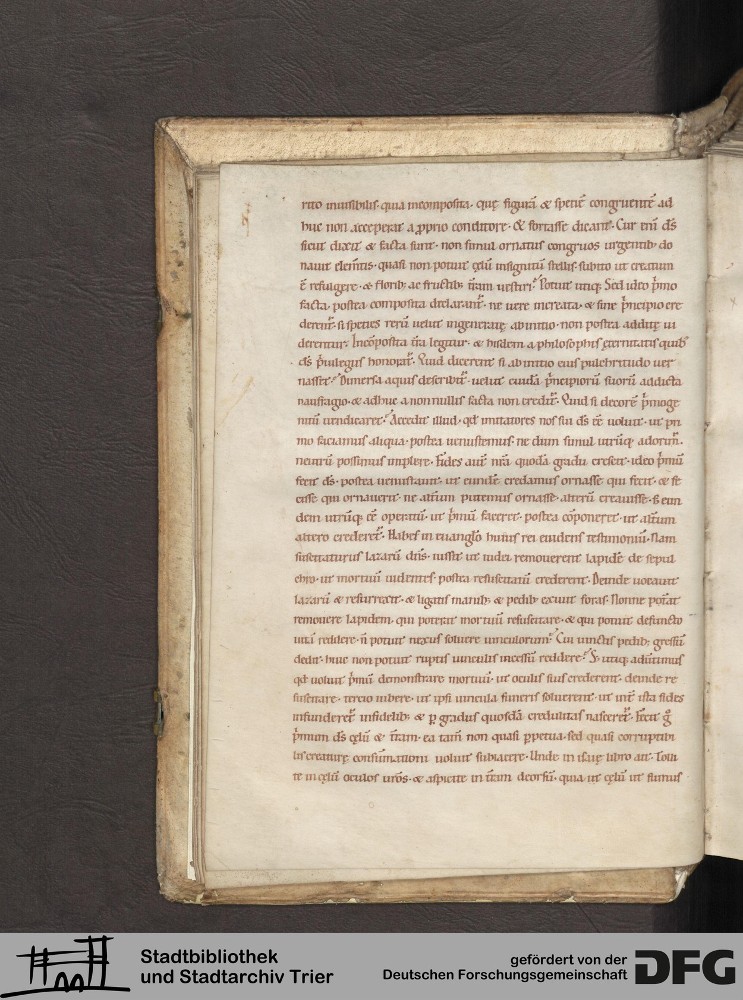 rito inuisibilis · quia incomposita · que figurā & speciē congruentē ad
huc non acceperat a ꝓprio conditore · & fortasse dicant · Cur eni ds̄
sicut dixit & facta sunt · non simul ornatus congruos urgentib; do
nauit elemtis · quasi non potuit celū insignitū stellis subito ut creatum
ē refulgere · & florib; ac fructib; tram uestiri? Potuit utiq; Sed ideo p̄mo
facta · postea composita declarant · ne uere increata · & sine p̄ncipio cre
derent · si species rerū uelut ingenerate ab initio · non postea addite ui
derentur · Incōposita tra legitur · & hisdem a philosophis eternitatis quib;
ds̄ p̄uilegiis honorat · Quid dicerent si ab initio eius pulchritudo uer
nasset? Dimersa aquis describit · uelut cuidā p̄ncipiorū suorū addicta
naufragio · & adhuc a nonnullis facta non credit · Quid si decorē p̄mige
niū uendicaret? Accedit illud · qd imitatores nos sui ds̄ ēē uoluit · ut pri
mo faciamus aliqua · postea uenustemus · ne dum simul utrūq; adorim̄ ·
neutrū possimus implere · Fides aut nra quodā gradu crescit · ideo p̄mū
fecit ds̄ · postea uenustauit · ut eundē credamus ornasse qui fecit · & fe
cisse qui ornauerit · ne alium putemus ornasse · alterū creauisse · s; eun
dem utrūq; ēē operatū · ut p̄mū faceret · postea cōponeret · ut alium
altero crederet · Habes in euanglo huius rei euidens testimoniū · Nam
suscitaturus lazarū dns̄ · iussit ut iudei remouerent lapidē de sepul
chro · ut mortuū uidentes postea resuscitatū crederent · Deinde uocauit
lazarū & resurrexit · & ligatis manib; & pedib; exiuit foras · Nonne poterat
remouere lapidem · qui poterat mortuū resuscitare · & qui potuit defuncto
uitā reddere · n̄ potuit nexus soluere uinculorum? Cui uinctis pedib; gressū
dedit · huic non potuit ruptis uinculis incessū reddere? S; utiq; aduertimus
qd uoluit p̄mū demonstrare mortuū · ut oculis suis crederent · deinde re
suscitare · tercio iubere · ut ipsi uincula funeris soluerent · ut int ista fides
infunderet infidelib; & ꝑ gradus quosdā credulitas nasceret · Fecit g̊
p̄mum ds̄ celū & tram · ea tam non quasi ꝑpetua · sed quasi corruptibi
lis creature consumationi uoluit subiacere · Unde in isaie libro ait · Tolli
te in celū oculos uros · & aspicite in tram deorsū · quia ut celū ut fumus
Stadtbibliothek
und Stadtarchiv Trier
gefördert von der
Deutschen Forschungsgemeinschaft
DFG